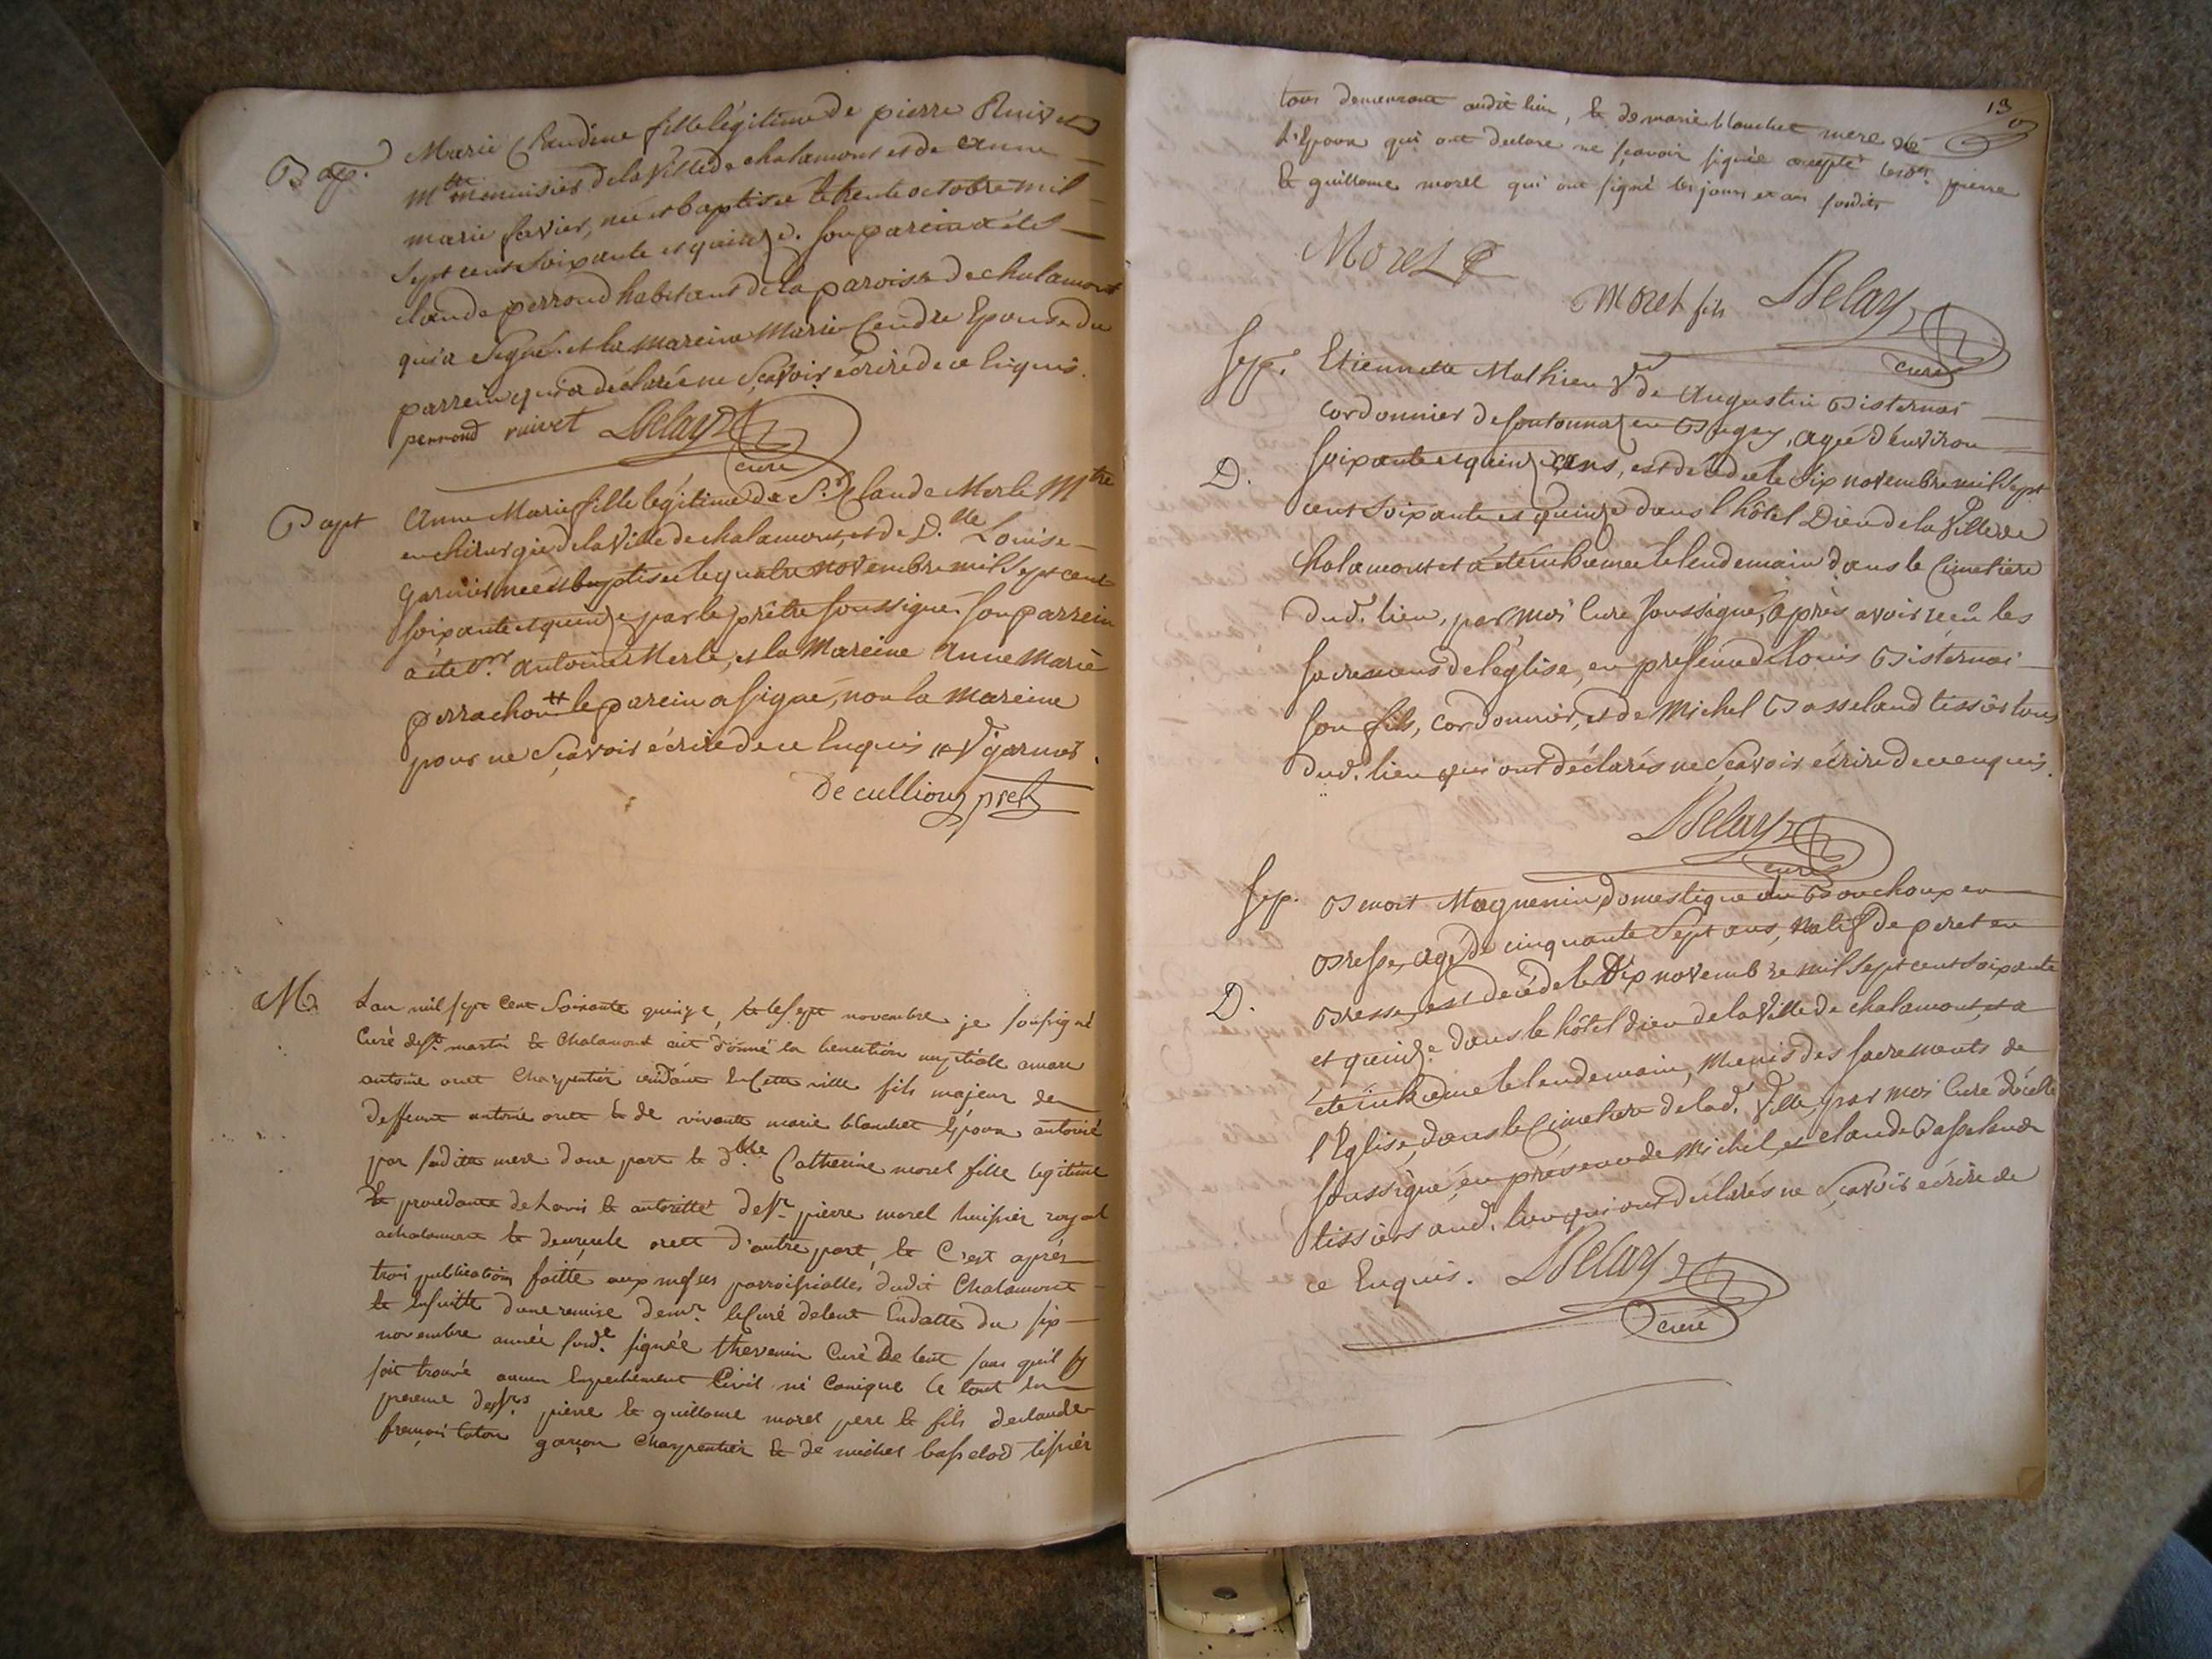 Bap.
Marie Claudine fille légitime de pierre Ruivet
Mtre menuisier de la Ville de chalamont et de Anne
marie favier, née et baptisée le trente octobre mil
Sept cent Soixante et quinze. Son parein a été
claude perroud habitant de la paroisse de chalamont
qui a Signé. et la mareine Marie Cendre Epouse du
parrein qui a déclarée ne Sçavoir écrire de ce Enquis.
perroud ruivet Delay
curé
Bapt
Anne Marie fille légitime de Sr. Claude Merle Mtre
en chirurgie de la Ville de chalamont, et de D.lle Louise
Garnier née et baptisée le quatre novembre mil Sept cent
soixante et quinze par le prêtre soussigné. Son parrein
a été Sr. Antoine Merle, et la Mareine Anne Marie
perrachon le parein a signé, non la mareine
pour ne Sçavoir écrire de ce Enquis
De cullion ptre
M.
Lan mil sept Cent Soixante quinze, et le sept novembre je soussigné
Curé de St. martin de Chalamont ait donné la benection nuptiale a
antoine ouet Charpentier residant En Cette ville fils majeur de
deffeunt antoine ouet & de vivante marie blanchet Epoux autorisé
par saditte mere d'une part & dlle Catherine morel fille legitime
& procedante de L'avis & autorité de Sr. pierre morel huissier royal
a chalamont & d'ursule ouet d'autre part, & C'est après
trois publications faitte aux messes parroissialles dudit Chalamont
& Ensuitte d'une remise de mr. le Curé de lent Endatte du six
novembre année susd.e signée thevenin Curé De lent sans qu'il sy
soit trouvé aucun Empechement Civil ni Canique le tout En
presence des srs pierre & guillaume morel pere & fils de claude
françois garçon Charpentier & de michel basselod tissier
13
tous demeurant audit lieu, & de marie blanchet mere de
L'Epoux qui ont declaré ne sçavoir signée excepté lesdts pierre
& guillaume morel qui ont signé les jours et an susdits
Morel
Morel fils Delay
curé
Sep.
D.
Etiennette Mathieu Ve de Augustin Bisternai
cordonnier de soutonnaz en Bugey, agée d'environ
soixante et quinze ans, est décédée le Six novembre mil Sept
cent Soixante et quinze dans l'hôtel Dieu de la Ville de
Chalamont et a été inhumée le lendemain dans le Cimetiere
dud. lieu, par moi Curé soussigné, après avoir reçu les
sacremens de l'église, en presence de Louis Bisternai
son fils, cordonnier, et de Michel Basseland tissier tous
dud. lieu qui ont déclarés ne Sçavoir écrire de ce enquis.
Delay
curé
Sep.
D.
Benoit Maguenin, domestique au Bouchoux en
Bresse, agé de cinquante Sept ans, natif de peret en
Bresse, est décédé le Dix novembre mil Sept cent Soixante
et quinze dans le hôtel dieu de la Ville de chalamont, et a
été inhumé le lendemain, munis des sacrements de
l'Eglise, dans le Cimetiere de lad. Ville, par moi Curé d'icelle
soussigné, en présence de Michel, et claude Basseland
tissiers aud. lieu qui ont déclarés ne Sçavoir écrire de
ce Enquis. Delay
curé